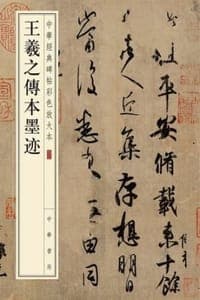 平安脩載来十餘
諸人近集存想明日
當復悉来无由同
中華經典碑帖彩色放大本
王羲之傳本墨迹
中華書局